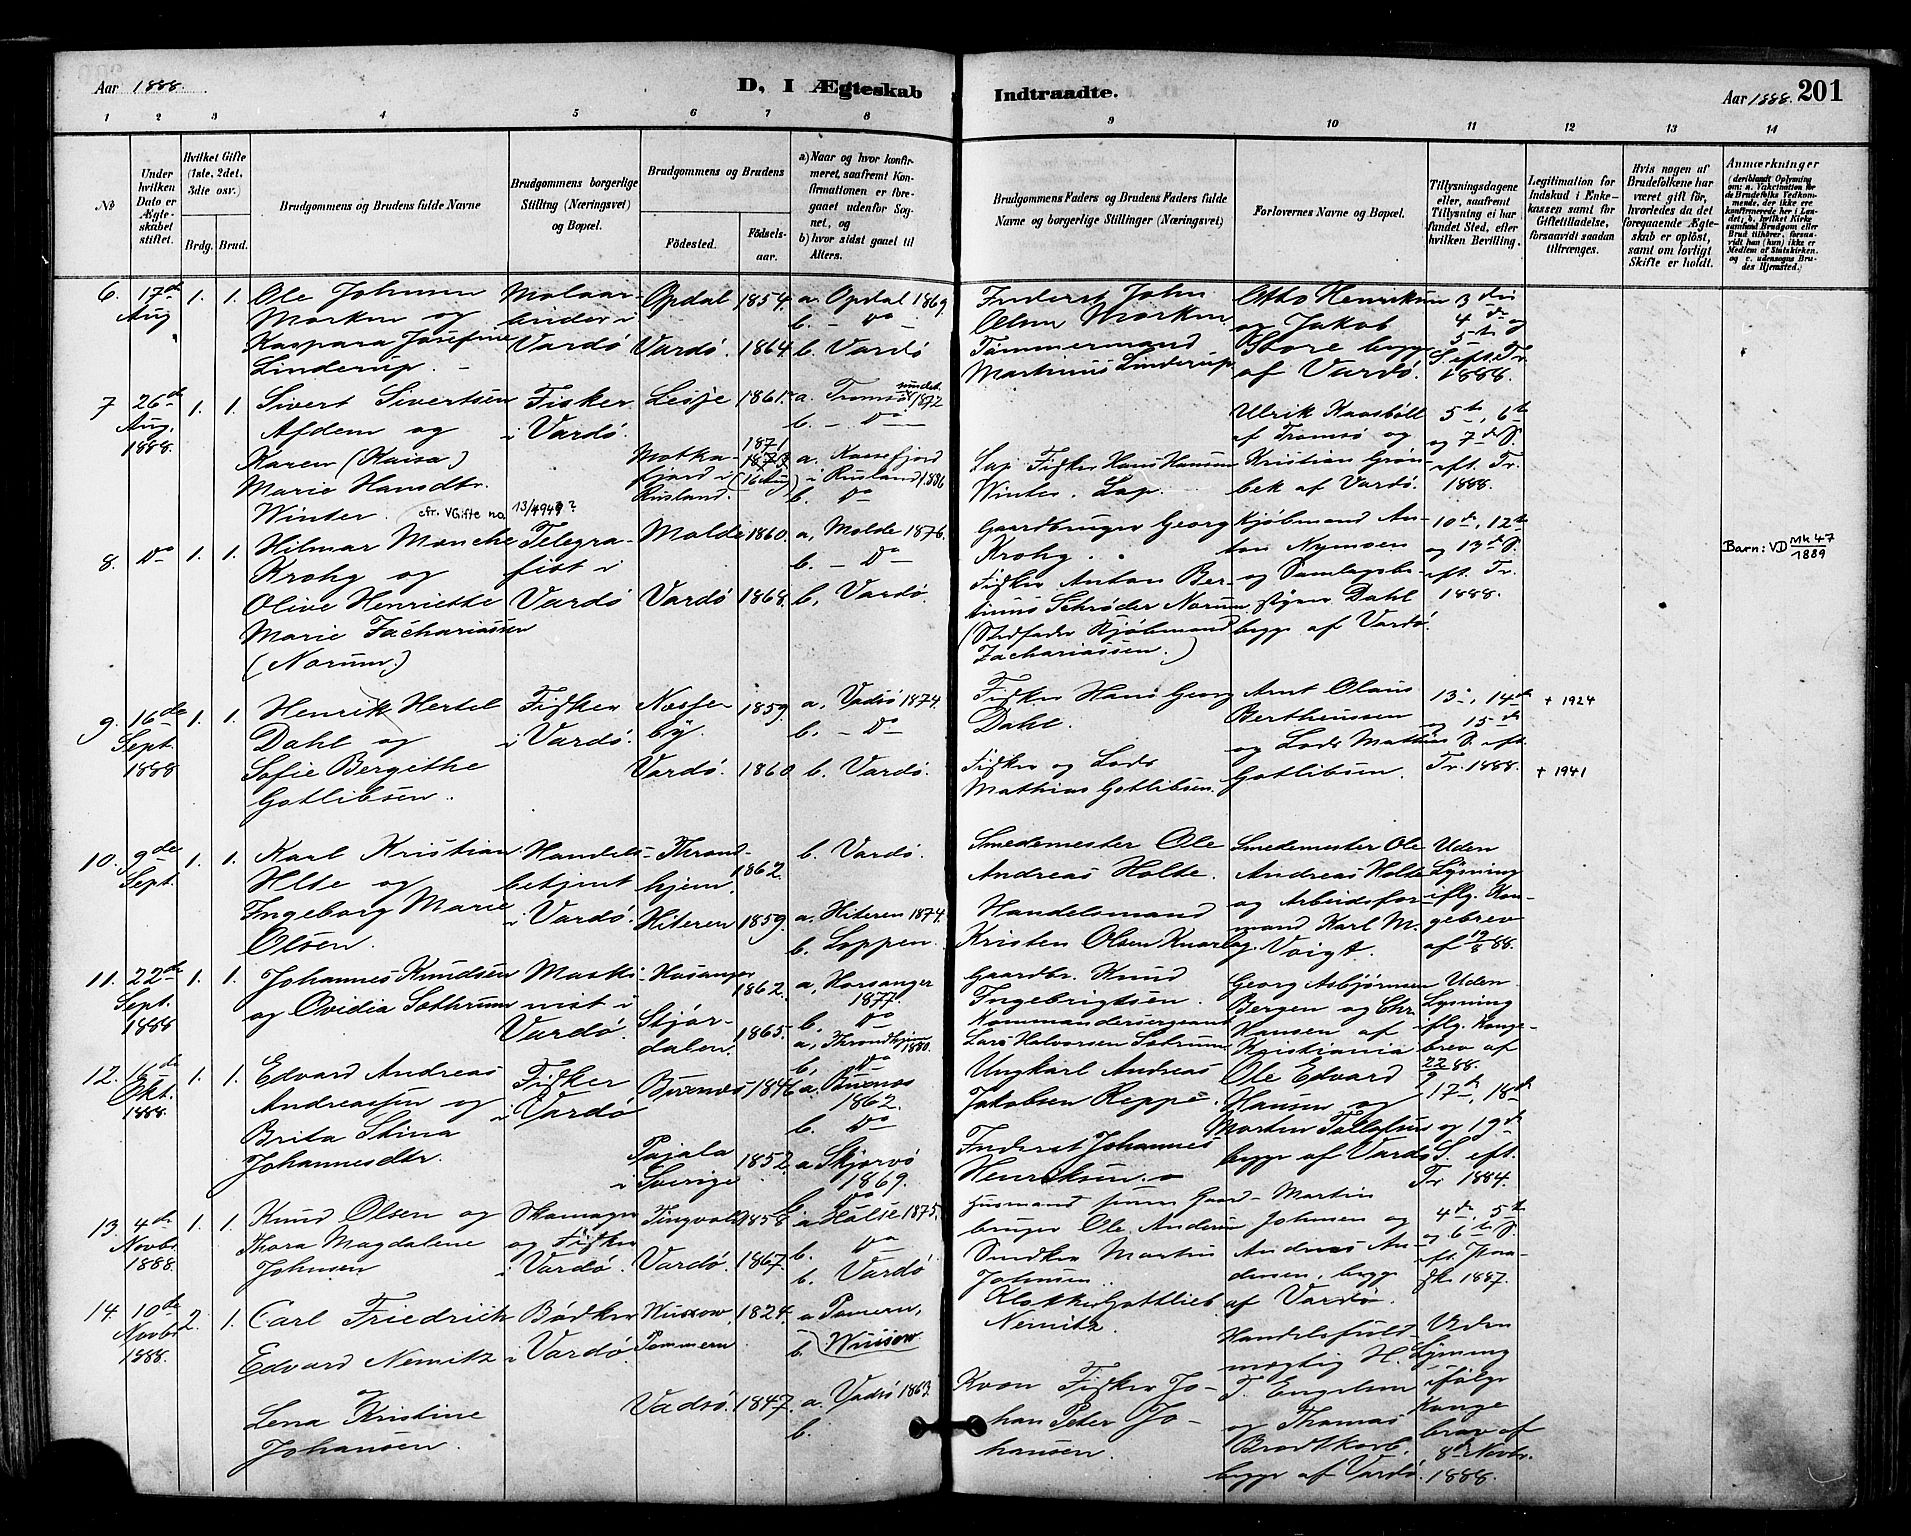 Aar 1888.
D. I Ægteskab
Indtraadte.
Aar 1888. 201
1 2 3 4 5 6 7 8 9 10 11 12 13 14
No
Under hvilken Dato er Ægteskabet stiftet.
Hvilket Gifte (1ste, 2det, 3die osv.)
Brdg. Brud.
Brudgommens og Brudens fulde Navne
Brudgommens borgerlige Stilling (Næringsvei) og Bopæl.
Brudgommens og Brudens
Födested. Födselsaar.
a) Naar og hvor konfirmeret, saafremt Konfirmationen er foregaaet udenfor Sognet, og
b) hvor sidst gaaet til Alters.
Brudgommens Faders og Brudens Faders fulde Navne og borgerlige Stillinger (Næringsvei)
Forlovernes Navne og Bopæl.
Tillysningsdagene eller, saafremt Tillysning ei har fundet Sted, efter hvilken Bevilling.
Legitimation for Indskud i Enkekassen samt for Giftetilladelse, forsaavidt saadan tiltrænges.
Hvis nogen af Brudefolkene har været gift för, hvorledes da det foregaaende Ægteskab er oplöst, samt om lovligt Skifte er holdt.
Anmærkninger
6. 17de Aug 1. 1.
Ole Johnsen
Morken og
Kaspara Josefine
Linderup.
Vardö
Opdal 1854. a. Opdal 1869.
b. - Do -
Vardö. 1864. b. Vardö
Inderst John
Olsen Morken
Tömmermand
Martinus Linderup
Otto Henriksen
og Jakob
Store begge
af Vardö.
3die
4de og
5te
S. eft. Tr.
1888.
7 26de Aug. 1888. 1. 1.
Sivert Sivertsen
Afdem og
Karen (Kaisa)
Marie Hansdtr.
Winter. cfr. VGifte no 13/1949?
Fisker
i Vardö.
Lesje 1861. a. Tromsösundet 1872
b. - Do -
Motka-
fjord i
Rusland
1871
1873
(16 Aug)
a. Kaaefjord
i Rusland 1886
b. Do
Lap. Fisker Hans Hansen
Winter. Lap.
Ulrik Kaasböll
af Tromsö og
Kristian Grön-
bek af Vardö.
5te, 6te
og 7de S.
eft. Tr.
1888.
8. Do 1. 1.
Hilmar Monche
Krohg og
Olive Henriette
Marie Zachariassen
(Norum.)
Telegra-
fist i
Vardö
Molde 1860. a. Molde 1876.
b. - Do -
Vardö 1868. b. Vardö.
Gaardbruger Georg
Krohg.
Fisker Anton Ber-
tinus Schröder Norum
(Stedfader Kjöbmand
Zachariassen.)
Kjöbmand An-
ton Nymoen
og Samlagsbe-
styrer Dahl
begge af Vardö.
10de, 12te
og 13de S.
eft. Tr.
1888.
Barn: VD Mk 47
1889
9. 16de Sept. 1888 1. 1.
Henrik Hertel
Dahl og
Sofie Bergithe
Gotlibsen.
Fisker
i Vardö.
Nesse-
by. 1859. a. Vadsö 1874.
b. - Do -
Vardö. 1860 b. Vardö.
Fisker Hans Georg
Dahl.
Fisker og Lods
Mathias Gotlibsen.
Arnt Olaus
Bertheussen
og Lods Mathias
Gotlibsen.
13de, 14de
og 15de
S. eft.
Tr. 1888.
+ 1924
+ 1941
10. 9de Sept. 1. 1.
Karl Kristian
Hlte og
Ingeborg Marie
Olsen.
Handels-
betjent
i Vardö.
Thrond-
hjem. 1862. b. Vardö.
Hiteren 1859. a. Hiteren 1874.
b. Loppen.
Smedemester Ole
Andreas Holte.
Handelsmand
Kristen Olsen Knarlag.
Smedemester Ole
Andreas Holte
og Arbeidsfor-
mand Karl M.
Voigt.
Uden
Lysning
iflg. Kon-
gebrev
af 19/8 88.
11. 22de Sept. 1888 1. 1.
Johannes Knudsen
og Ovidia Sæthrum
Maski-
nist i
Vardö.
Hosanger 1862. a. Horsanger
1877.
b. Do
Stjör-
dalen. 1865. a. Throndhjem 1880.
b. Do
Gaardbr. Knud
Ingebrigtsen.
Kommandersergeant
Lars Halvorsen Sætrum
Georg Asbjörnsen
Bergen og Chr.
Hansen af
Kristiania
Uden
Lysning
iflg. Konge-
brev af
22/9 88.
12. 16de Okt. 1888. 1. 1.
Edvard Andreas
Andreassen og
Brita Stina
Johannesdtr.
Fisker
i Vardö
Buxenæs 1846 a. Buxnæs
1862.
b. Do
Pajala
i Sverige 1852. a. Skjervö
1869.
b. Do
Ungkarl Andreas
Jakobsen Reppe.
Inderst Johannes
Henriksen.
Ole Edvard
Hansen og
Morten Tollefsen
begge af Vardö
17de, 18de
og 19de
S. eft.
Tr. 1884.
13. 4de Novbr. 1888. 1. 1.
Knud Olsen og
Thora Magdalene
Johnsen
Skomager
og Fisker
i Vardö.
Tingvold 1858. a. Halse 1875.
b. Do
Vardö. 1867. b. Vardö
Husmand senere Gaard-
bruger Ole Andersen
Snedker Martin
Johnsen.
Martin
Johnsen og
Andreas An-
dersen, begge
af Vardö.
4de, 5te
og 6te S.
eft. Paa-
ske 1887.
14. 10de Novbr. 1888. 2. 1.
Carl Friedrich
Edvard Nemitz
Lena Kristine
Johansen.
Bödker
i Vardö.
Wussow,
Pommern 1824. a. Pomern,
b. Wussow
Vadsö. 1847. a. Vadsö 1863.
b.
Klokker Gottlieb
Nemitz.
Kvæn Fisker Jo-
han Peter Jo-
hansen.
Handelsfuld-
mægtig H.
T. Engelsen
og Thomas
Brodtkorb.
begge af Vardö.
Uden
Lysning
ifölge
Konge
brev af
8de Novbr.
1888.